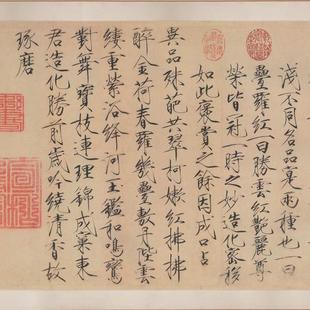 淺不同名品實兩種也一曰
疊羅紅一曰勝雲紅艷麗尊
榮皆冠一時之妙造化密移
如此褒賞之餘因成口占
異品殊葩共翠柯嫩紅拂拂
醉金荷春羅幾疊敷丹陛雲
縷重縈浴絳河玉鑑和鳴鸞
對舞寶枝連理錦成窠東
君造化勝前歲吟繞清香故
琢磨